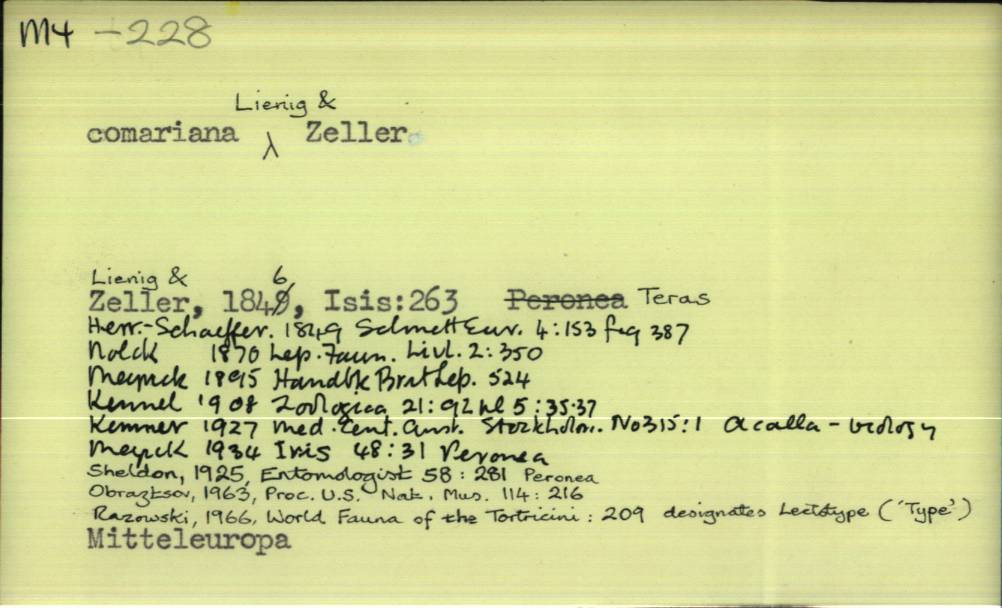 M4 -228
Lienig &
comariana λ Zeller
Lienig & 6
Zeller, 1849, Isis:263 Peronea Teras
Herr.-Schaeffer. 1849 Schmett Eur. 4:153 fig 387
Nolck 1870 Lep. Faun. Livl. 2:350
Meyrick 1895 Handbk Brit Lep. 524
Kennel 1908 Zoologica 21:92 pl 5:35-37
Kemner 1927 Med. Cent. Anst. Stockholm. No 315:1 Acalla - biology
Meyrick 1934 Iris 48:31 Peronea
Sheldon, 1925, Entomologist 58: 281 Peronea
Obraztsov, 1963, Proc. U.S. Nat. Mus. 114: 216
Razowski, 1966, World Fauna of the Tortricini: 209 designates Lectotype ('Type')
Mitteleuropa